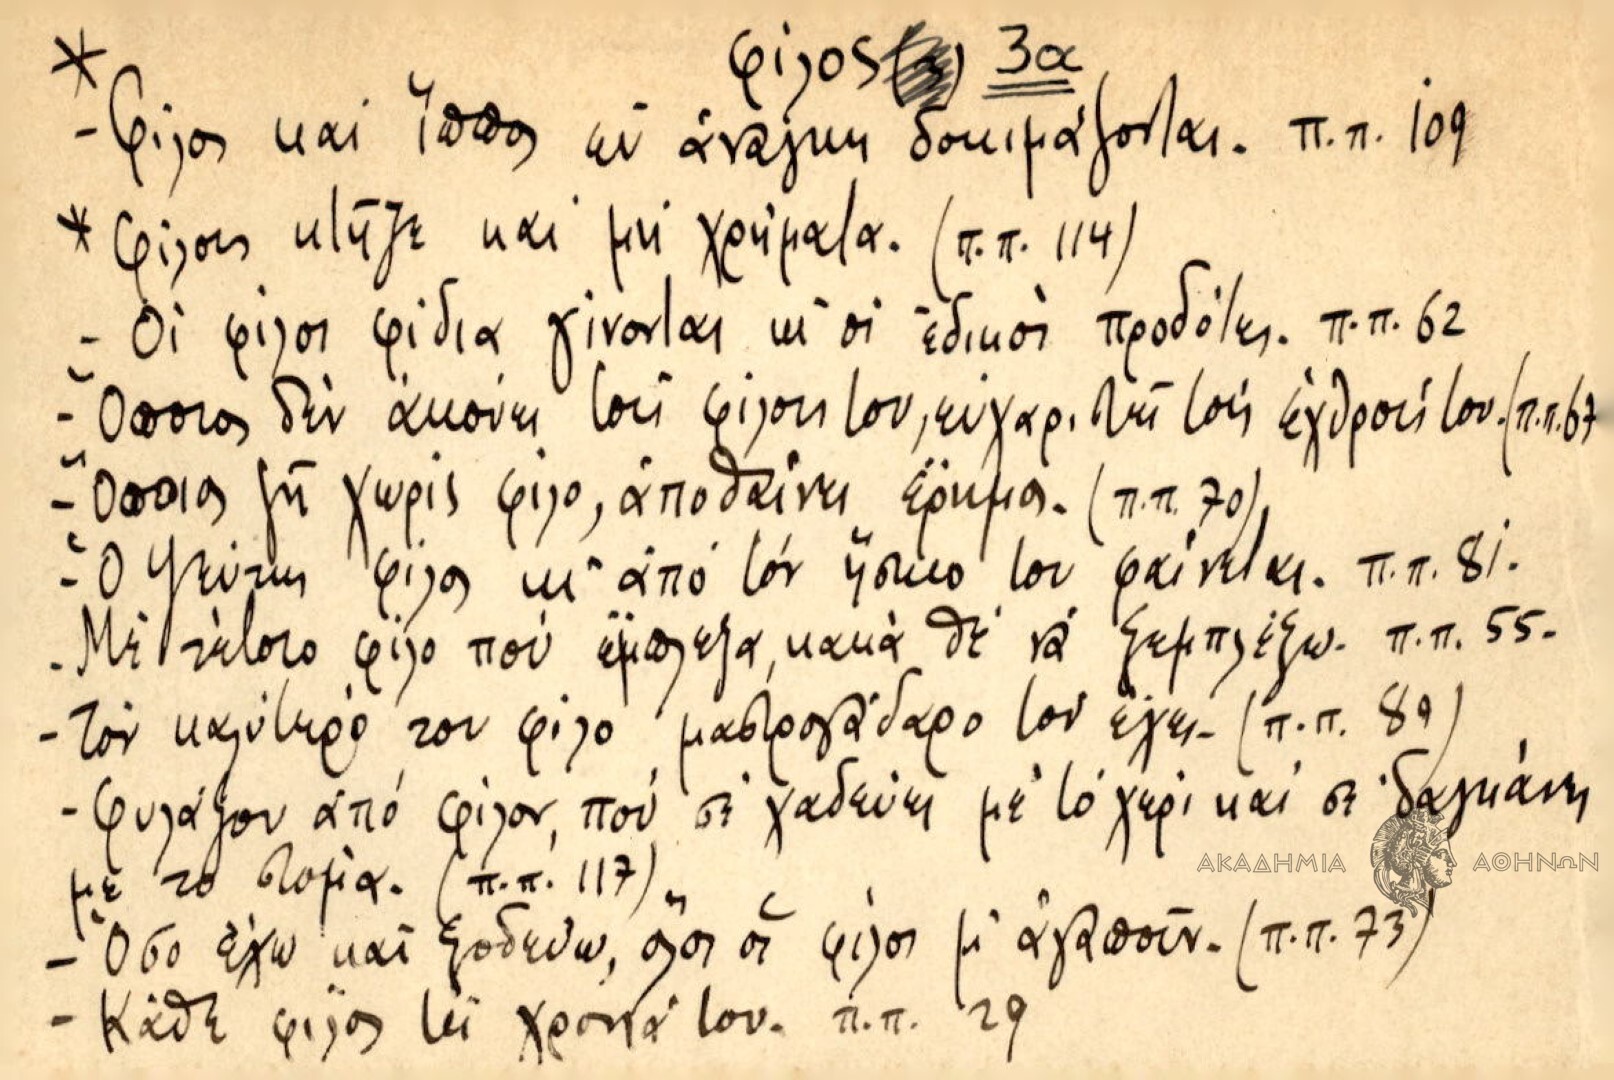 * φίλος 3α
- Φίλος καί ἵππος ἐν ἀνάγκῃ δοκιμάζονται. π.π. 109
* Φίλους κτῆζε καί μή χρήματα. (π.π. 114)
- Οἱ φίλοι φίδια γίνονται κι' οἱ ἐδικοὶ προδότες. π.π. 62
- Ὅποιος δὲν ἀκούει τοὺς φίλους του, εὐχαριστεῖ τοὺς ἐχθρούς του. (π.π. 67
- Ὅποιος ζῆ χωρὶς φίλο, ἀποθαίνει ἔρημος. (π.π. 70)
- Ὁ ψεύτης φίλος κι' ἀπό τόν ἥσκιο του φαίνεται. π.π. 81.
- Μὲ τέτοιο φίλο πού ἔμπλεξα, κακὰ θέ νά ξεμπλέξω. π.π. 55.
- Τόν καλύτερό του φίλο μαστρογάδαρο τόν ἔχει. (π.π. 89)
- Φυλάξου ἀπό φίλον, πού σέ χαδεύει μέ τό χέρι καί σέ δαγκάνει
μέ το στομα. (π.π. 117)
- Ὅσο ἔχω καί ξοδεύω, ὅλοι οἱ φίλοι μ' ἀγαποῦν. (π.π. 73)
- Κάθε φίλος τή χρονιά του. π.π. 29
ΑΚΑΔΗΜΙΑ ΑΘΗΝΩΝ